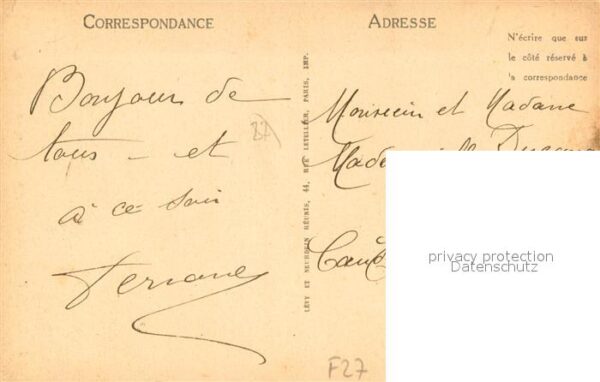 CORRESPONDANCE
ADRESSE
N'écrire que sur
le côté réservé à
la correspondance
Bonjour de
tous - et
à ce soir
Fernand
27
LÉVY ET NEURDEIN RÉUNIS, 44, RUE LETELLIER, PARIS, IMP.
Monsieur et Madame
privacy protection
Datenschutz
F27